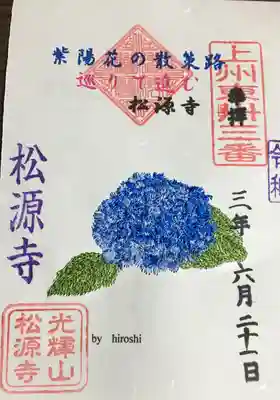 紫陽花の散策路
巡りて進む
松源寺
奉拝
令和
三年 六月二十一日
松源寺
光輝山
松源寺
by hiroshi